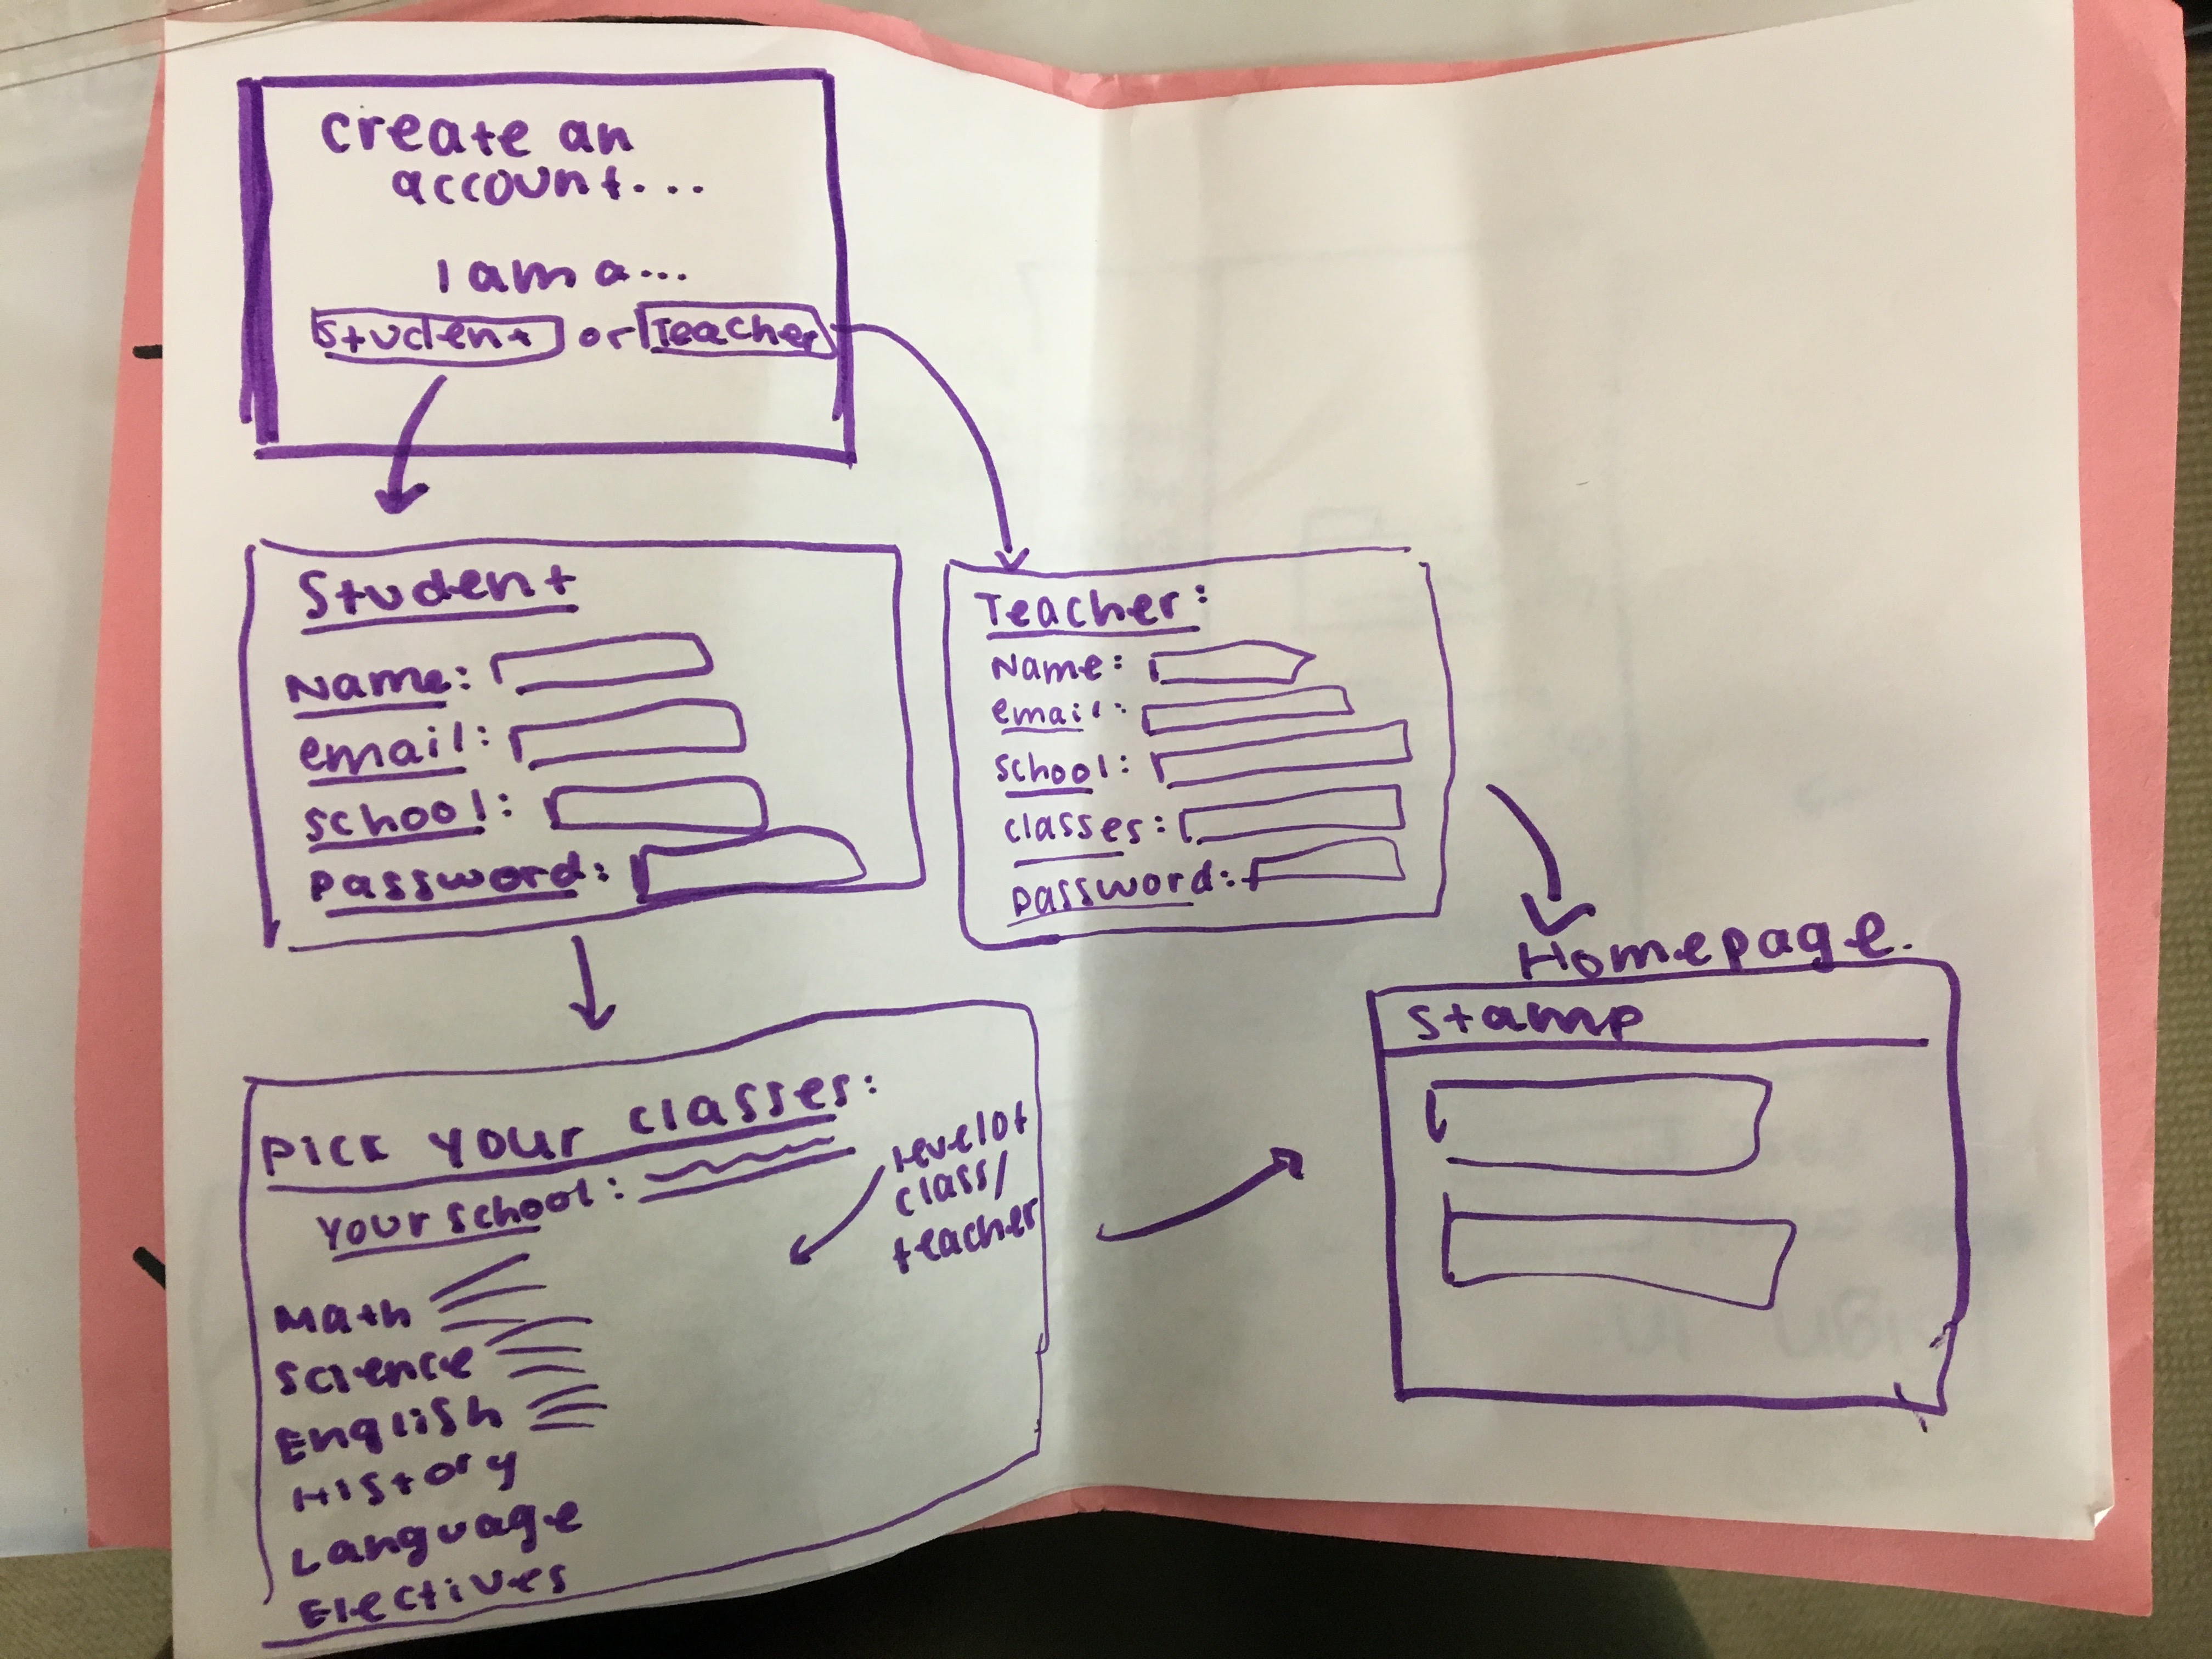 create an
account...
I am a...
Student or Teacher
Student
Name:
email:
school:
password:
Teacher:
Name:
email:
school:
classes:
password:
Homepage.
stamp
Pick your classes:
your school:
level of
class/
teacher
Math
Science
English
History
Language
Electives